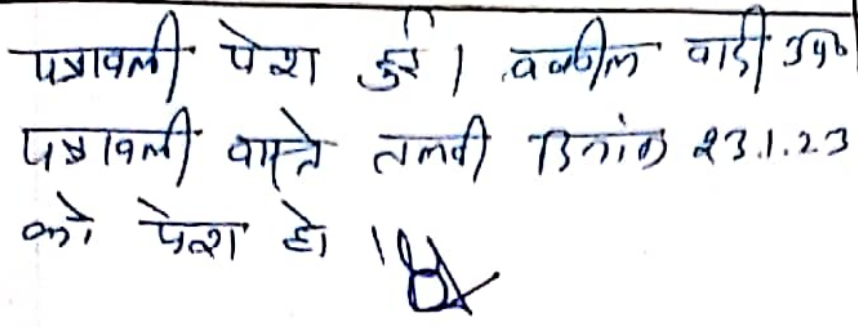 पत्रावली पेश हुई। वकील वादी उप०
पत्रावली वास्ते तलबी दिनांक 23.1.23
को पेश हो